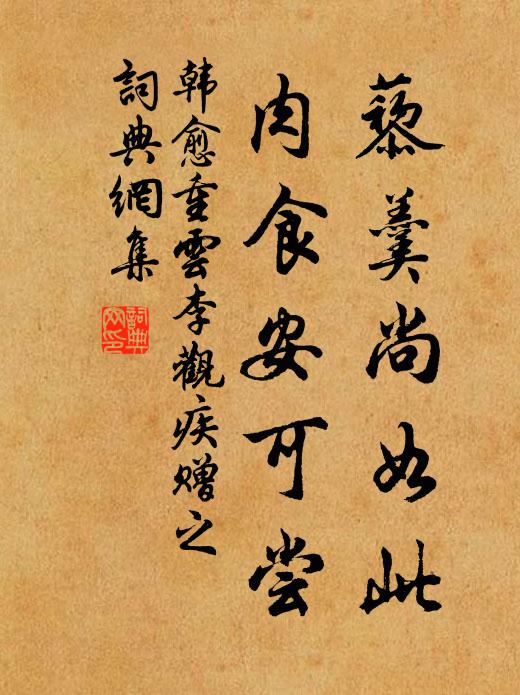 藜羹尚如此
肉食安可尝
韩愈重雲李觀疾赠之
詞典網集
詞典網印